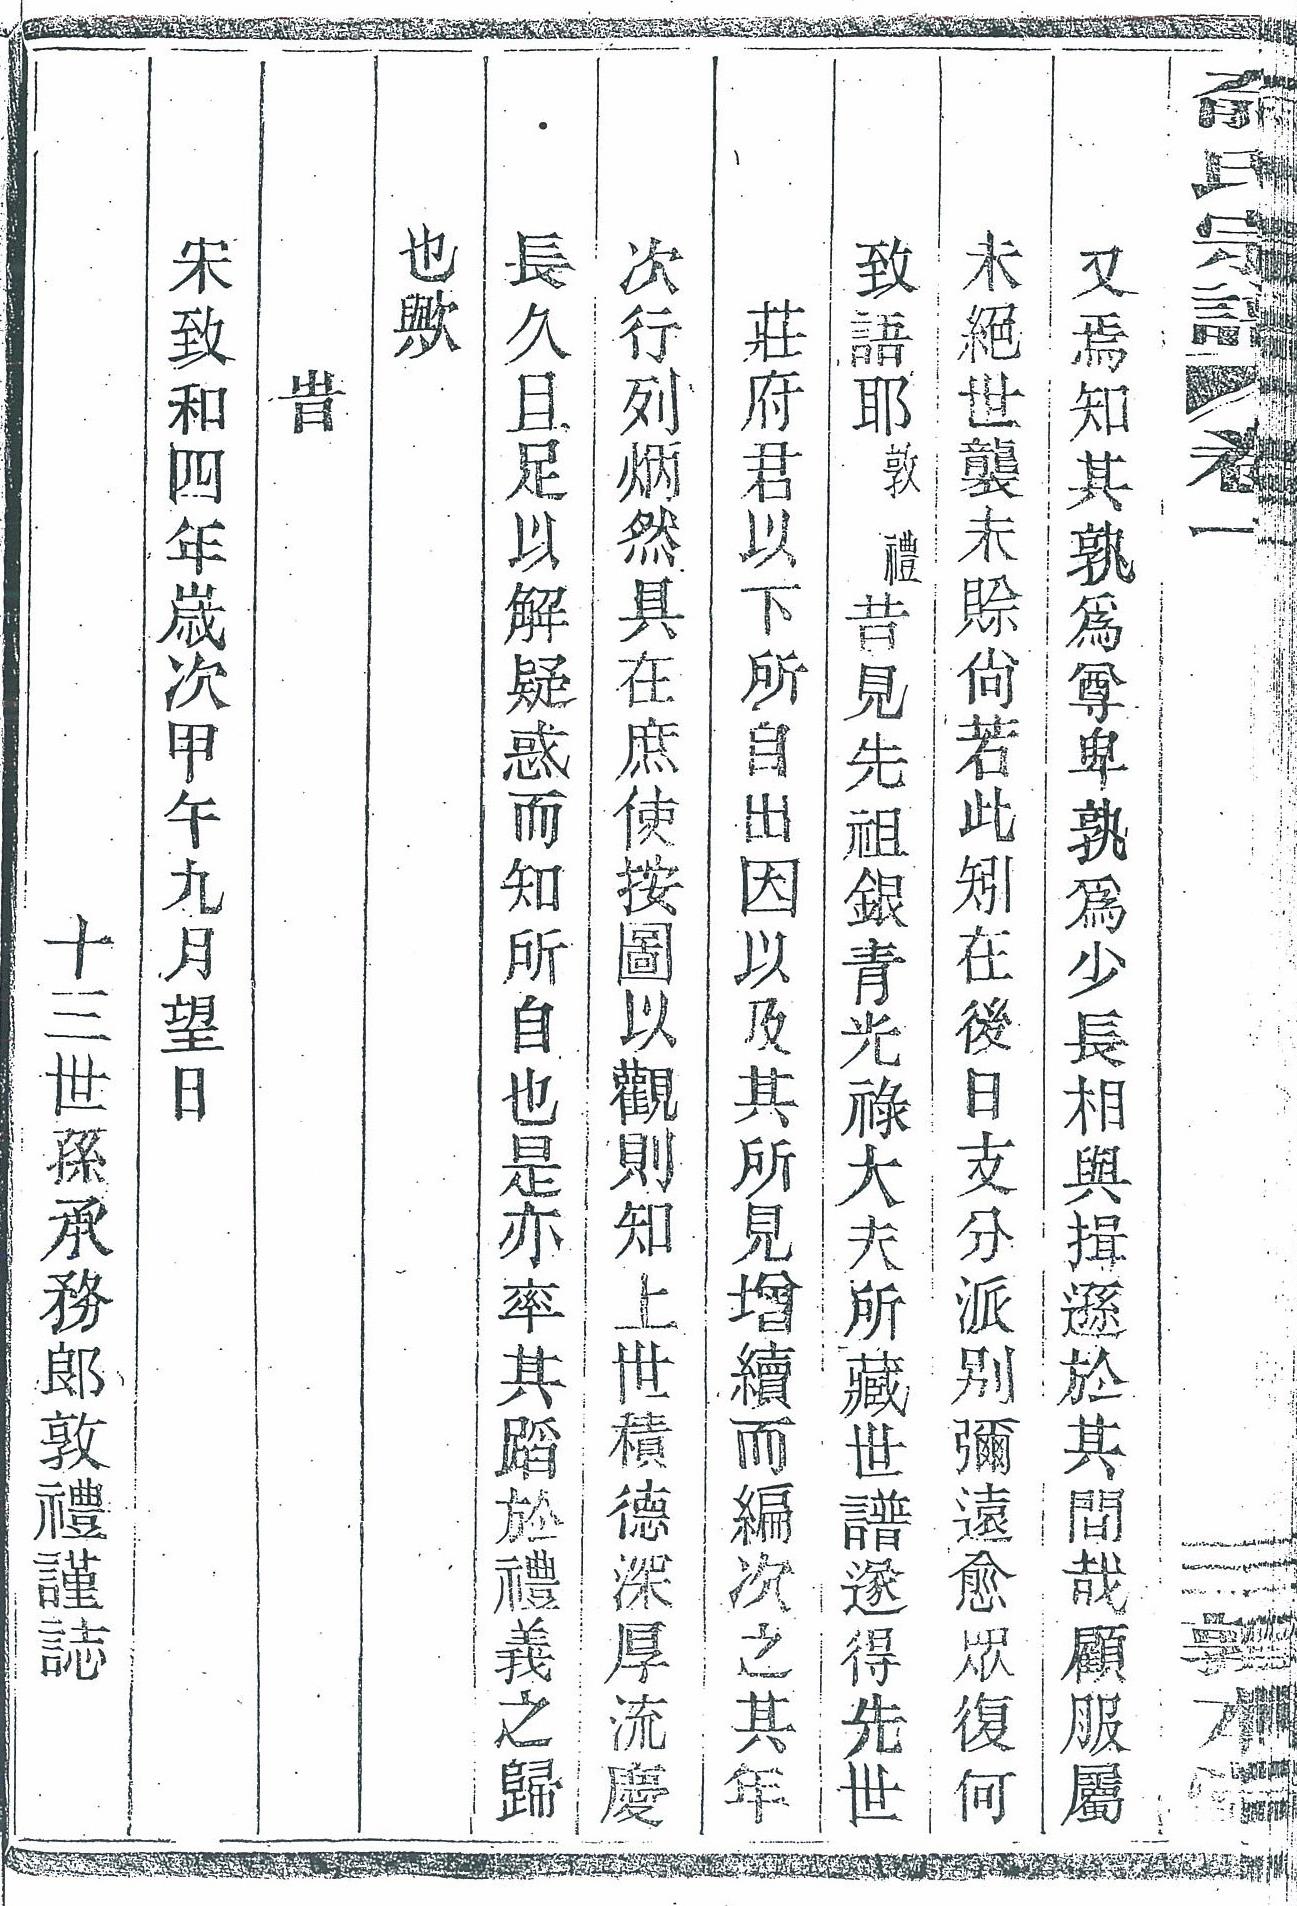 俞氏宗譜 卷一
又焉知其孰爲尊卑孰爲少長相與揖遜於其間哉顧服屬
未絕世襲未賒尙若此矧在後日支分派别彌遠愈眾復何
致語耶敦禮昔見先祖銀青光祿大夫所藏世譜遂得先世
莊府君以下所自出因以及其所見增續而編次之其年
次行列炳然具在庶使按圖以觀則知上世積德深厚流慶
長久且足以解疑惑而知所自也是亦率其蹈於禮義之歸
也歟
旹
宋致和四年歲次甲午九月望日
十三世孫承務郎敦禮謹誌